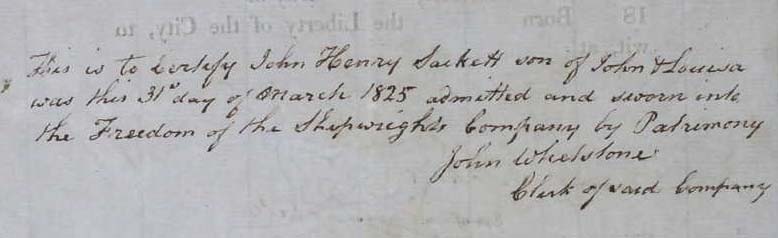 This is to Certify John Henry Sackett son of John & Louisa
was this 31st day of March 1825 admitted and sworn into
the Freedom of the Shipwrights Company by Patrimony
John Whetstone
Clerk of said Company